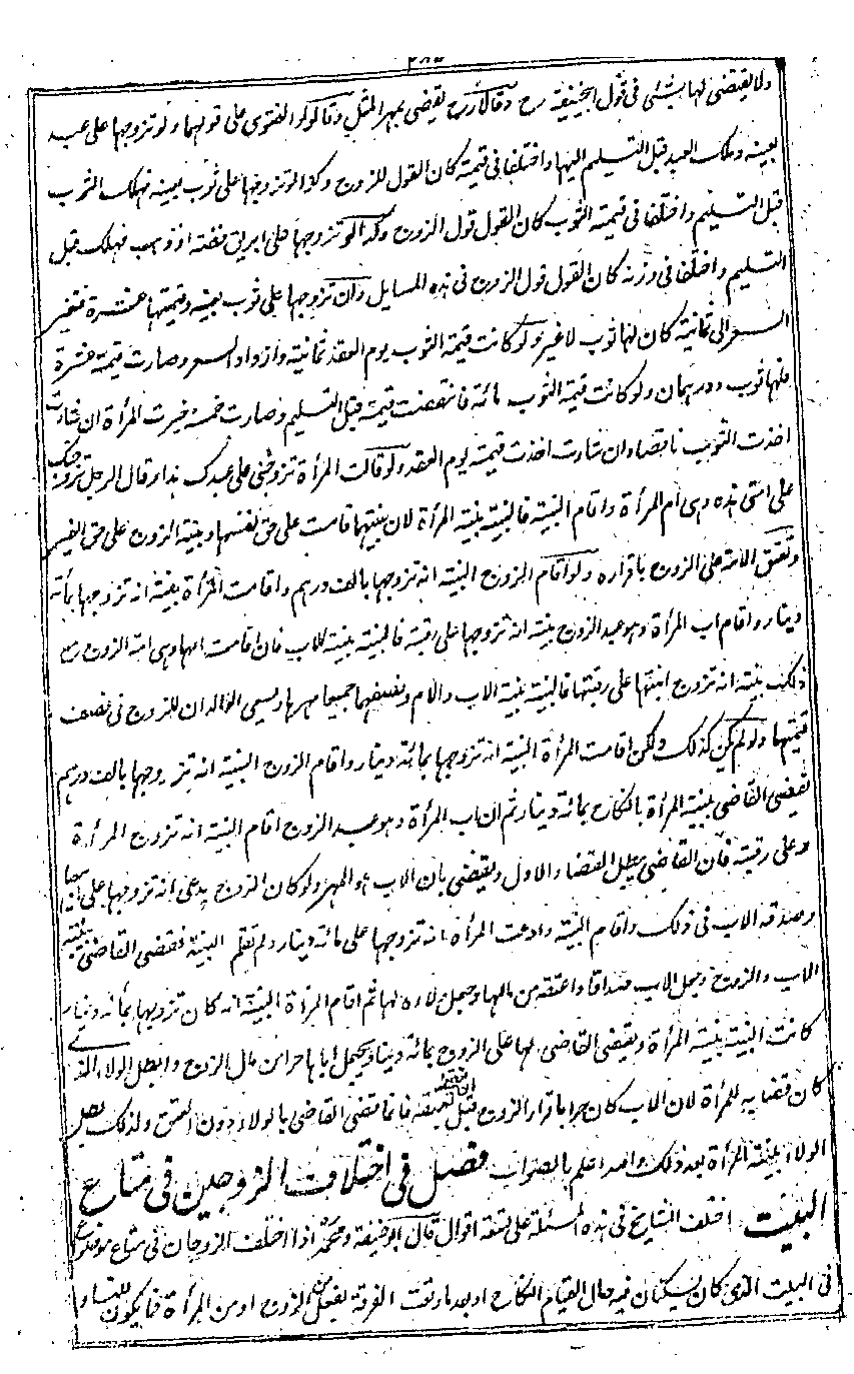 ولا يقضى لها بشئى فى قول ابحنيفة رح وقالا رح يقضى بمهر المثل وقالوا الفتوى على قولهما ولو تزوجها على عبد
بعينه وهلك العبد قبل التسليم اليها واختلفا فى قيمته كان القول للزوج وكذا لو تزوجها على ثوب بعينه فهلك الثوب
قبل التسليم واختلفا فى قيمته الثوب كان القول قول الزوج وكذا لو تزوجها على ابريق فضة او ذهب فهلك قبل
التسليم واختلفا فى وزنه كان القول قول الزوج فى هذه المسايل وان تزوجها على ثوب بعينه وقيمتها عشرة فتغير
السعر الى ثمانية كان لها ثوب لا غير ولو كانت قيمة الثوب يوم العقد ثمانية وازداد السعر وصارت قيمة عشرة
فلها ثوب ودرهمان ولو كانت قيمة الثوب مائة فانتقصت قيمته قبل التسليم وصارت خمسة خيرت المرأة ان شارت
اخذت الثوب ناقصا وان شارت اخذت قيمته يوم العقد ولو قالت المرأة تزوجنى على عبدك هذا وقال الرجل تزوجتك
على امتى هذه وهى ام المرأة واقام البينة فالبينة بينة المرأة لان بينتها قامت على حق نفسها وبينة الزوج على حق الغير
وتعتق الامة على الزوج باقراره ولو اقام الزوج البينة انه تزوجها بالف درهم واقامت المرأة بينة انه تزوجها بمائة
دينار واقام اب المرأة وهو عبد الزوج بينة انه تزوجها على رقبته فالبينة بينة الاب فان اقامت امها وهى امة الزوج مع
ذلك بينة انه تزوج ابنتها على رقبتها فالبينة بينة الاب والام ونصفهما جميعا مهرها ويسعى الوالدان للزوج فى نصف
قيمتها ولو لم يكن كذلك ولكن اقامت المرأة البينة انه تزوجها بمائة دينار واقام الزوج البينة انه تزوجها بالف درهم
فقضى القاضى ببينة المرأة بالنكاح بمائة دينار ثم ان اب المرأة وهو عبد الزوج اقام البينة انه تزوج المرأة
على رقبته فان القاضى يبطل القضاء الاول ويقضى بان الاب هو المهر ولو كان الزوج يدعى انه تزوجها على ابيها
وصدقه الاب فى ذلك واقام البينة وادعت المرأة انه تزوجها على مائة دينار ولم تقم البينة فقضى القاضى ببينة
الاب والزوج وجعل الاب صداقا واعتقه من مالها وجعل ولاءه لها ثم اقام المرأة البينة انه كان تزوجها بمائة دينار
كانت البينة بينة المرأة ويقضى القاضى لها على الزوج بمائة دينار ويجعل اباها حرا من مال الزوج وابطل الولاء الذى
كان قضا به للمرأة لان الاب كان حرا باقرار الزوج قبل فانما قضى القاضى بالولاء دون العتق ولذلك بطل
الولاء ببينة المرأة بعد ذلك والله اعلم بالصواب فصل فى اختلاف الزوجين فى متاع
البيت اختلف المشايخ فى هذه المسئلة على تسعة اقوال قال ابوحنيفة ومحمد اذا اختلف الزوجان فى متاع موضوع
فى البيت الذى كان يسكنان فيه حال القيام النكاح او بعد ما وقعت الفرقة بفعل من الزوج او من المرأة فما يكون للنساء